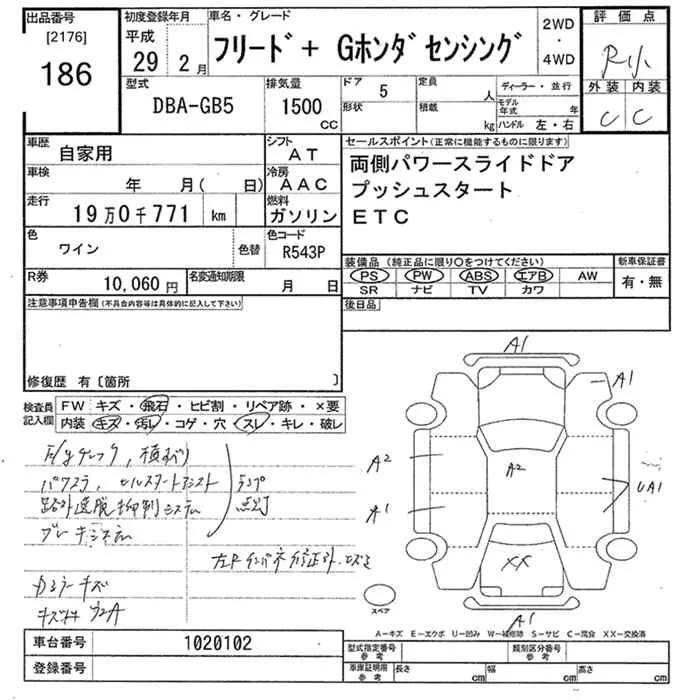 出品番号
[2176]
186
初度登録年月
平成
29 2月
車名・グレード
フリード+ Gホンダセンシング
2WD
・
4WD
評価点
R小
外装 内装
C C
型式
DBA-GB5
排気量
1500
CC
ドア
5
形状
定員
人
積載
kg
ディーラー・並行
モデル年式 年
ハンドル 左・右
車歴
自家用
シフト
AT
車検
年 月( 日)
冷房
AAC
走行
19万0千771 km
燃料
ガソリン
色
ワイン
色替
色コード
R543P
R券
10,060 円
名変通知期限
月 日
セールスポイント(正常に機能するものに限ります)
両側パワースライドドア
プッシュスタート
ETC
装備品 (純正品に限り○をつけてください)
PS PW ABS エアB AW
SR ナビ TV カワ
新車保証書
有・無
後日品
注意事項申告欄(不具合内容等は具体的に記入して下さい)
修復歴 有〔箇所 〕
検査員
記入欄
FW キズ・飛石・ヒビ割・リペア跡・×要
内装 キズ・汚レ・コゲ・穴・スレ・キレ・破レ
ブレーキシステム
ランプ
点灯
A1
A1
A2
A2
A1
UA1
XX
A1
スペア
A−キズ E−エクボ U−凹み W−補修跡 S−サビ C−腐食 XX−交換済
車台番号
1020102
登録番号
型式指定番号
参考
類別区分番号
参考
車庫証明用
参考
長さ cm
幅 cm
高さ cm